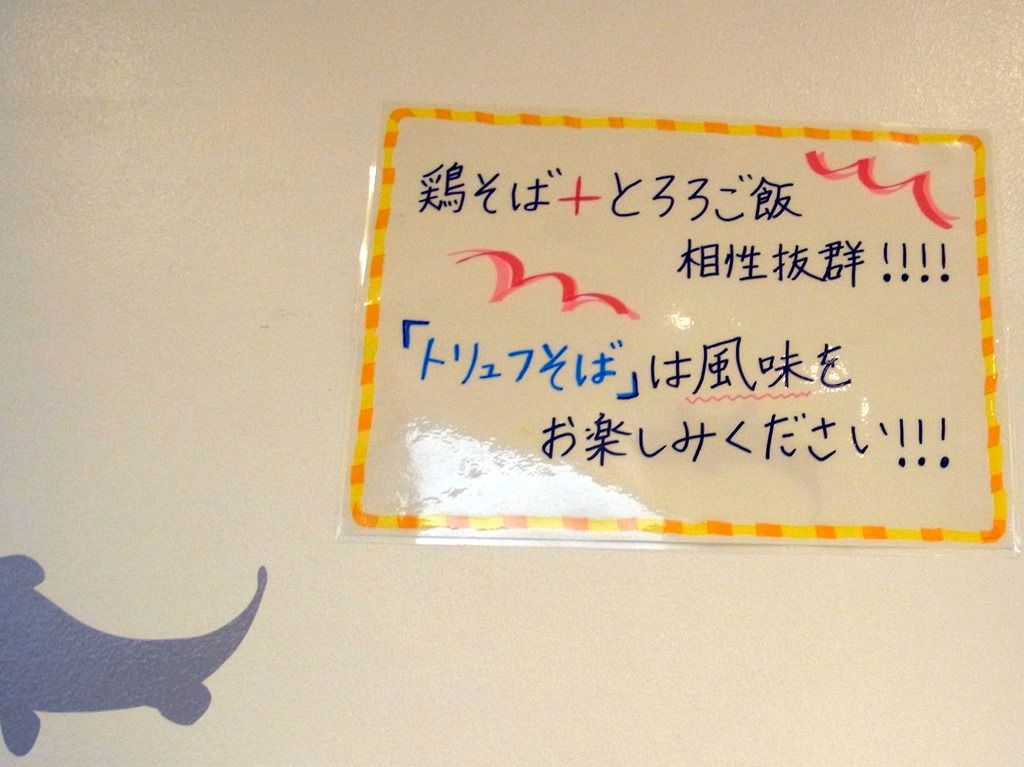 鶏そば+とろろご飯
相性抜群!!!!
「トリュフそば」は風味を
お楽しみください!!!